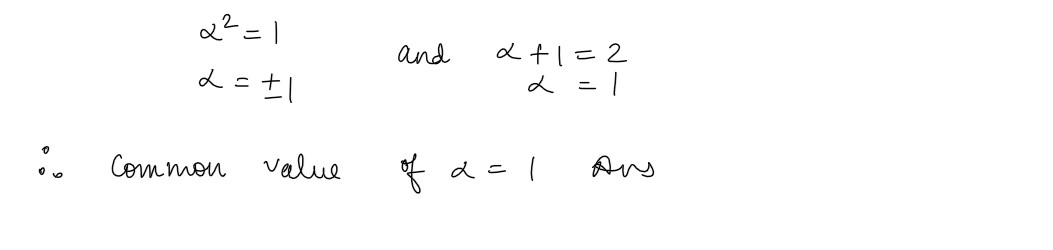 α² = 1
and α + 1 = 2
α = ±1
α = 1
∴ Common value of α = 1 Ans